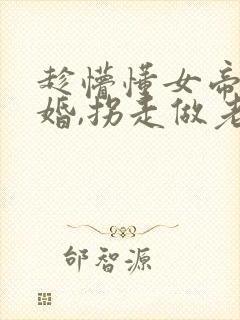 趁懵懂女帝
婚,拐走做老
邰智源